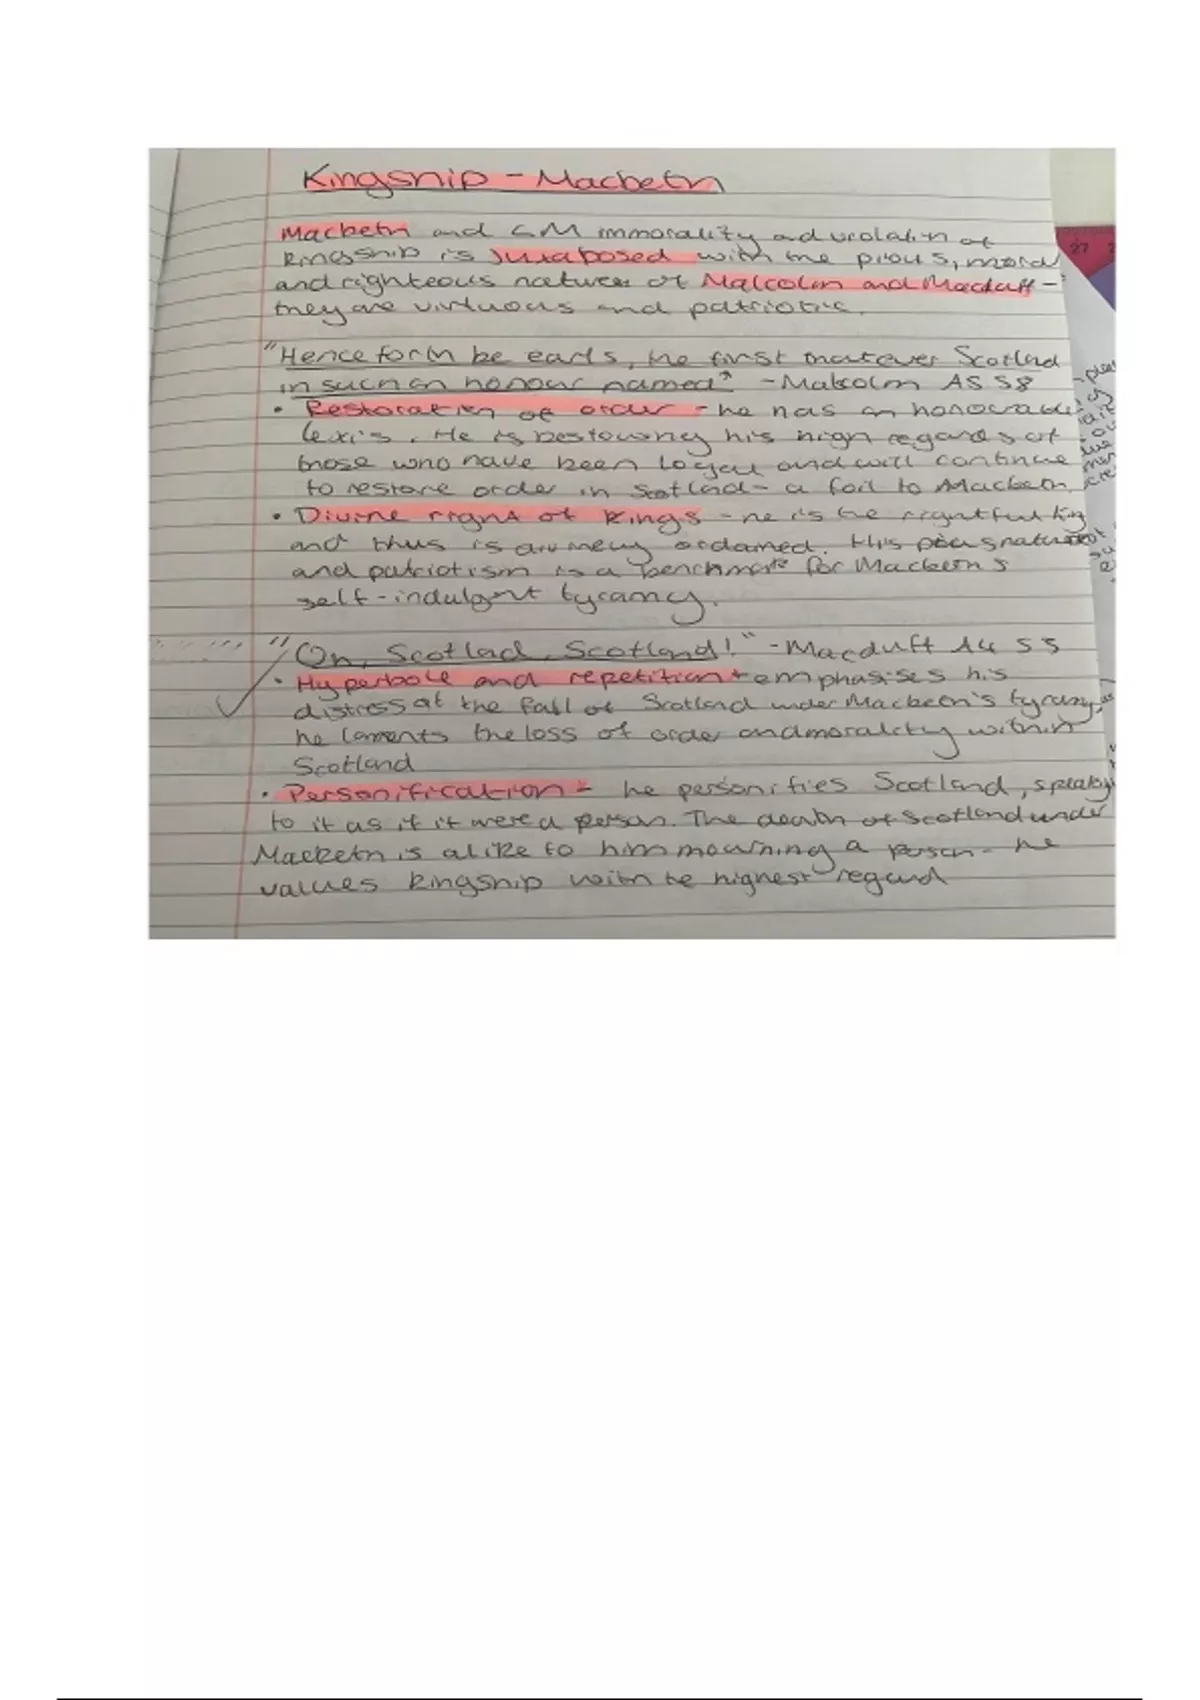 Kingship - Macbeth
Macbeth and LM immorality and violation of
kingship is Juxtaposed with the pious, moral
and righteous natures of Malcolm and Macduff -
they are virtuous and patriotic.
"Henceforth be earls, the first that ever Scotland
in such an honour named" - Malcolm A5 S8
• Restoration of order - he has an honourable
lexis. He is bestowing his high regards of
those who have been loyal and will continue
to restore order in Scotland - a foil to Macbeth
• Divine right of kings - he is the rightful king
and thus is divinely ordained. His pious nature
and patriotism is a benchmark for Macbeth's
self-indulgent tyranny.
"Oh, Scotland, Scotland!" - Macduff A4 S3
• Hyperbole and repetition - emphasises his
distress at the fall of Scotland under Macbeth's tyranny,
he laments the loss of order and morality within
Scotland
• Personification - he personifies Scotland, speaking
to it as if it were a person. The death of Scotland under
Macbeth is alike to him mourning a person - he
values kingship with the highest regard
27